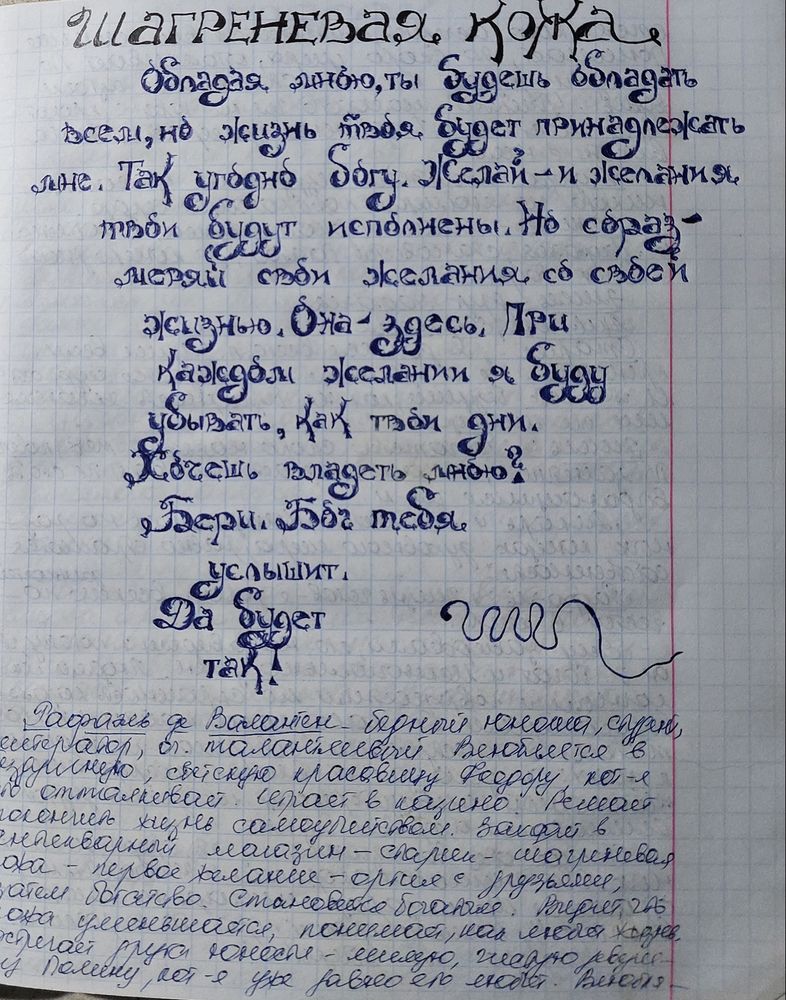 ШАГРЕНЕВАЯ КОЖА
Обладая мною, ты будешь обладать
всем, но жизнь твоя будет принадлежать
мне. Так угодно богу. Желай - и желания
твои будут исполнены. Но сораз-
меряй свои желания со своей
жизнью. Она - здесь. При
каждом желании я буду
убывать, как твои дни.
Хочешь владеть мною?
Бери. Бог тебя
услышит.
Да будет
так!
Рафаэль де Валантен - бедный юноша,
литератор, оч. талантливый. Влюбляется в
светскую красавицу Феодору, кот-я
его отталкивает. Играет в казино. Решает
покончить жизнь самоубийством. Заходит в
антикварный магазин - старик - шагреневая
кожа - первое желание - оргия с друзьями,
затем богатство. Становится богатым. Видит, что
кожа уменьшается, понимает, как любит жизнь.
Встречает друга юности - милую,
Полину, кот-я уже давно его любит. Влюбля-